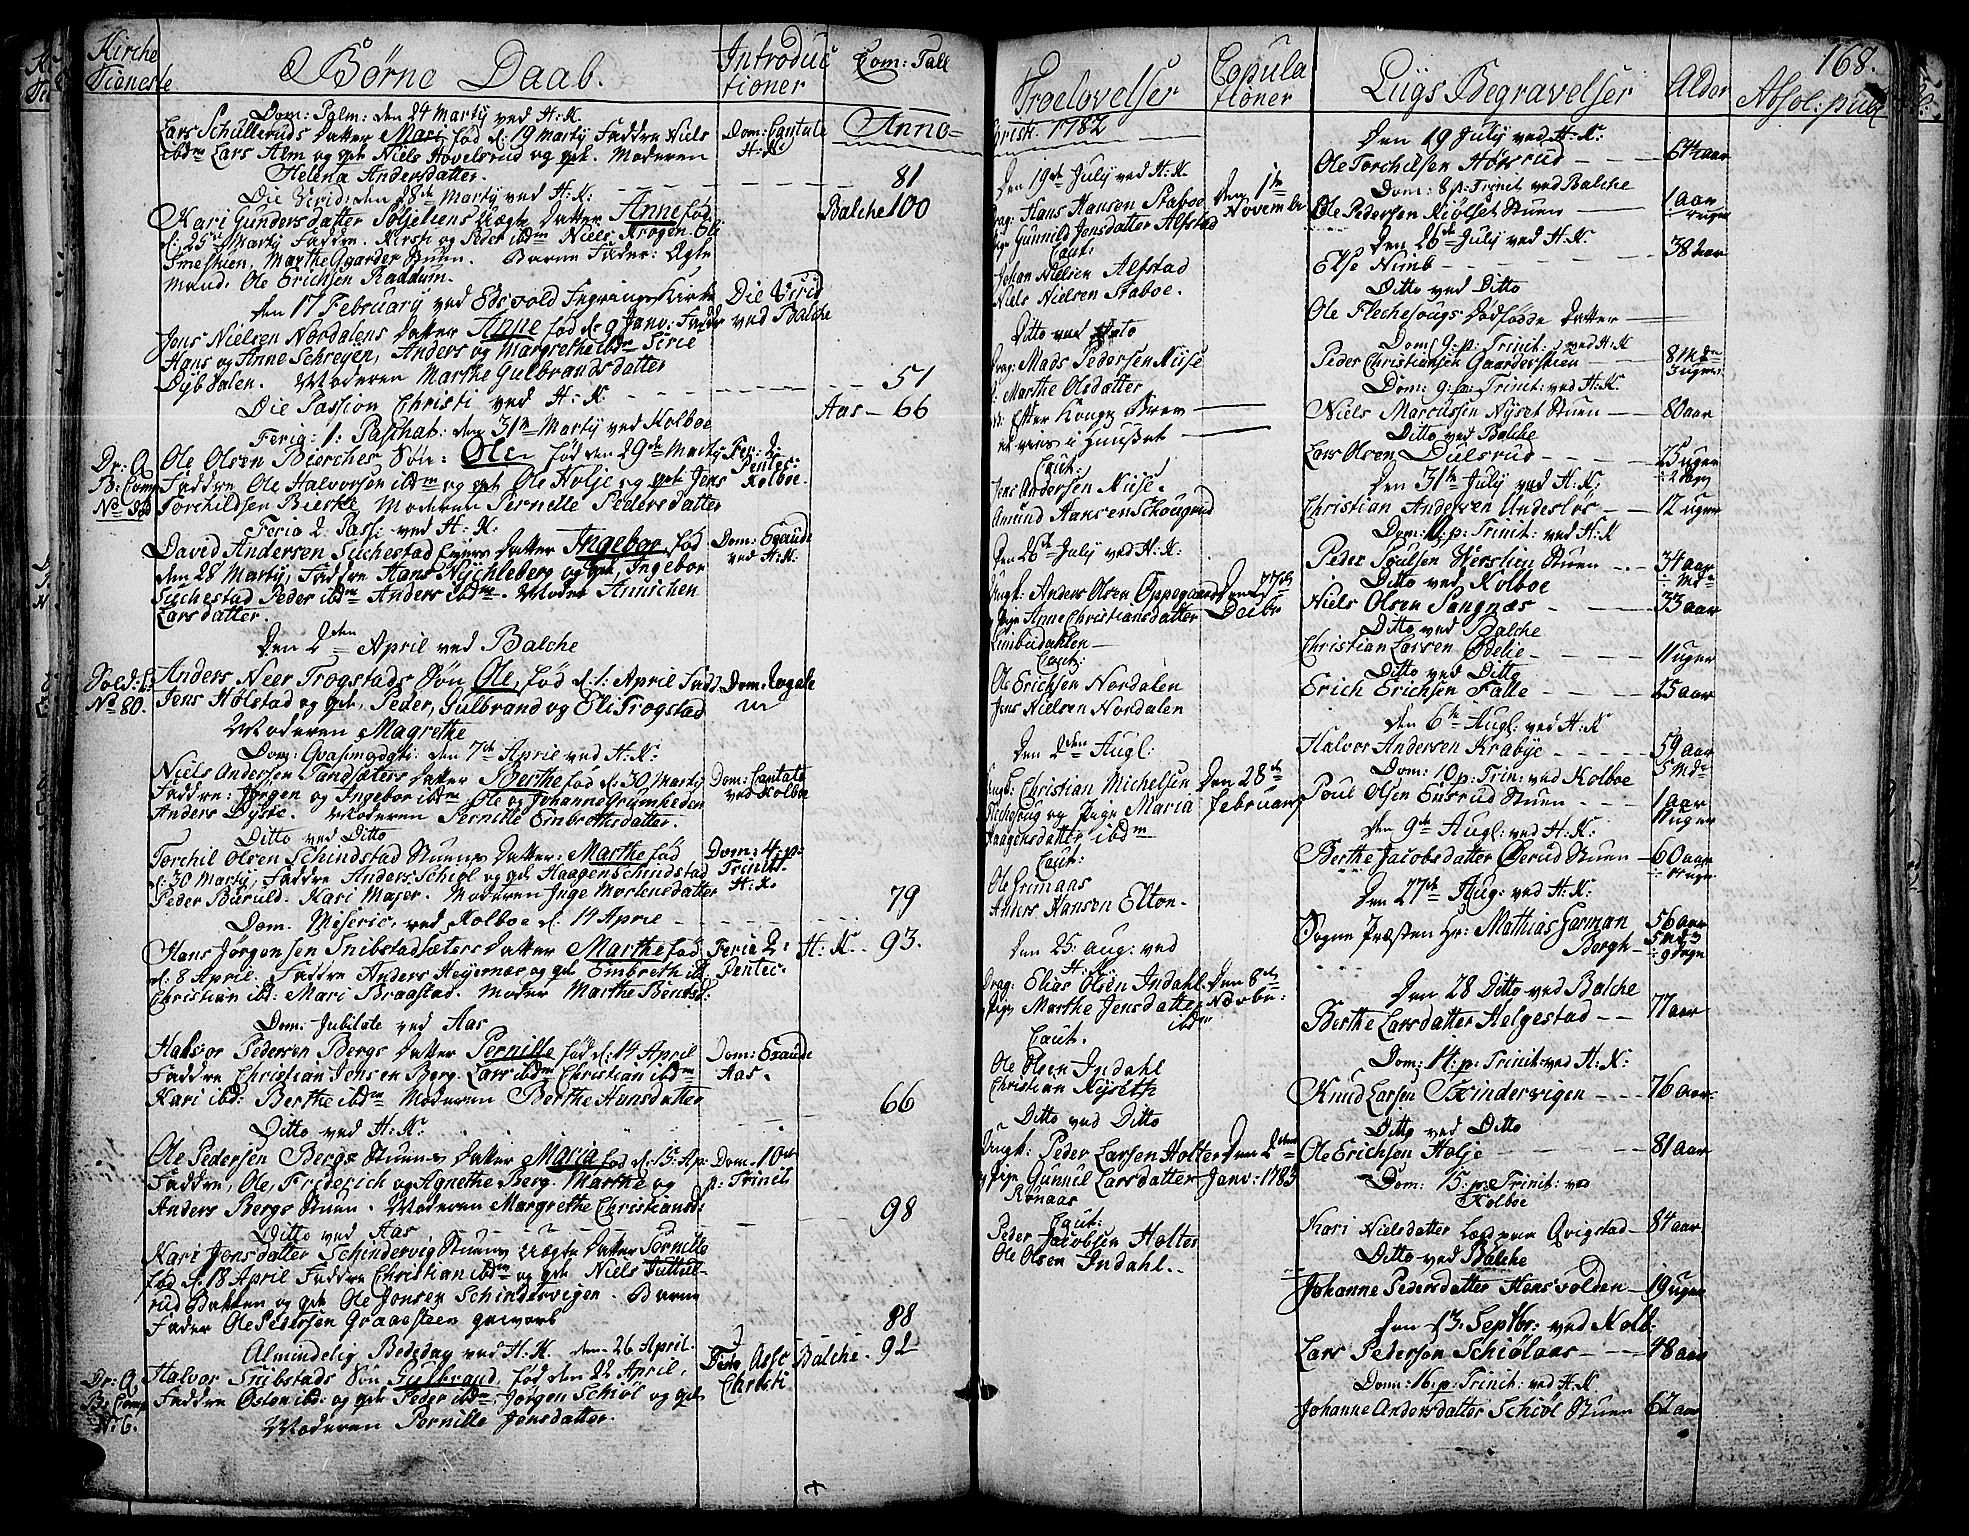 Kirche
Tieneste
Børne Daab.
Introduc
tioner
Com: Tall
Dom: Palm: den 24 Martÿ ved H: K:
Lars Schülleruds Datter Mari fød d: 19 Martÿ Faddre Niels
ibdm Lars Alm og gvk Niels Hovelsrud og gvk. Moderen
Helena Andersdatter.
Dom: Cantate
H: K:
Anno
Die Virid: den 28de Martÿ ved H: K:
81
Balche 100
Kari Gundersdatter Uægte Datter Anne fød
d: 25 Martÿ Faddre. Kirsti og Peder ibdm Niels Krogen Eli
Smestuen, Marthe Stuen. Barne Fader: Ægte
Mand. Ole Erichsen Raddum.
den 17 February ved Edsvold Kirke
Jens Nielsen Nordalens Datter Anne fød d: 9 Janv: Faddr
Hans og Anne Schreÿen, Anders og Margrethe ibdm Sirie
Dybdalen. Moderen Marthe Gulbrandsdatter
Die Virid
ved Balche
51
Die Passion Christi ved H: K.
Aas - 66
Feria: 1: Paschat: den 31te Martÿ ved Kolboe
Dr: A
B: Comp
Ole Olsen Bierches Søn: Ole fød den 29de Martÿ
Faddre Ole Halvorsen ibdm og gvk Ole Holje og gvk Jens
Torchildsen Bierke Moderen Pernelle Pedersdatter
Fer: 2
Pentec:
Kolboe.
Feria 2. Pasc: ved H: K:
David Andersen Sichestad Datter Ingebor fød
den 28 Martÿ, Faddre Hans Nÿchleberg og gvk, Ingebor
Sichestad Peder ibdm Anders ibdm. Moder Annichen
Larsdatter.
Dom: Exaudi
ved H: K:
Den 2den April ved Balche
Sold: L:
No 80.
Anders Neer Trogstads Søn Ole, fød d. 1: April Fadd.
Jens Hølstad og gvk, Peder, Gulbrand og Eli Trogstad
Moderen Magrethe
Dom: Rogate
Dom: Qvasimodog: den 7de April ved H: K:
Niels Andersen Datter Berthe fød d: 30 Martÿ
Faddre: Jørgen og Ingebor ibdm Ole og Johanne Grimheden
Anders Dÿste. Moderen Pernille Embrethsdatter.
Dom: Cantate
ved Kolboe
Ditto ved Ditto
Torchil Olsen Schindstad Stuens Datter: Marthe fød
d: 30 Martÿ. Faddre Anders Schiøl og gvk Haagen Schindstad
Peder Bururld. Kari Majer. Moderen Inge Mortensdatter
Dom: 4: p:
Trinit:
H: K.
79
Dom. Miseric, ved Kolboe d. 14 April
Hans Jørgensen Datter Marthe fød
d: 8 April. Faddre Anders Heÿernæs og gvk Embreth ib
Christian ibd: Mari Braastad. Moder Marthe
Feria 2:
Pentec:
H: K. 93.
Dom: Jubilate ved Aas
Halvor Pedersen Bergs Datter Pernille fød d: 14 April
Faddre Christian Jensen Berg. Lars ibdm Christian ibdm
Kari ibd: Berthe ibdm Moderen Berthe Hansdatter
Dom: Exaudi
Aas.
66
Ditto ved H: K:
Ole Pedersen Bergs Stuens Datter Maria fød d. 15 Ap
Faddre, Ole, Friderich og Agnethe Berg. Marthe og
Anders Bergs Stuen. Moderen Margrethe Christiansd:
Dom. 10
p: Trinit
98
Ditto ved Aas
Kari Jensdatter Schindervig Stuens Uægte Datter Pernille
fød d. 18 April Faddre Christian ibdm og gvk Niels
rud Batten og gvk Ole Jonsen Schindervigen. Barne
Fader Ole Pedersen Graasteen
88
Almindelig Bededag ved H: K. den 26 April.
Balche. 92
Dr: A
B: Comp
No 6.
Halvor Snibstads Søn Gulbrand, fød den 22 April,
Faddre Osten ibd: og gvk Peder ibdm Jørgen Schiøl og gvk
Moderen Pernille Jensdatter.
Festo Asc:
Christi
Troelovelser
Copula
tioner
Christi 1782
Den 19de Julÿ ved H: K.
Drag: Hans Hansen Staboe
Pige Gunnild Jensdatter Alfstad
Caut:
Johan Nielsen Alfstad
Niels Nielsen Staboe.
Den 1te
November
Ditto ved Dito
Drag: Mads Pedersen Niise
P: Marthe Olsdatter
Efter Kongs Brev
i Huuset
Caut:
Jens Andersen Niise.
Amund Hansen
Den 26de Julÿ ved H: K:
Ungk: Anders Olsen Oppegaard
Pige Anne Christiansdatter
Caut:
Ole Erichsen Nordalen
Jens Nielsen Nordalen
Den 27de
Decbr
Den 2den Aug:
Ungk: Christian Michelsen
og Pige Maria
Haagensdatter ibdm
Caut:
Ole Grimaas
Anders Hansen Elton.
Den 28de
Februarÿ
Den 25. Aug: ved
H: K.
Drag: Elias Olsen Indahl
Pige Marthe Jensdatter
ibdm
Caut.
Ole Olsen Indahl
Christian Nÿseth
Den 8de
Novbr:
Ditto ved Ditto
Ungk: Peder Larsen Holter
Pige Gunnil Larsdatter
Rønaas
Caut:
Peder Jacobsen Holter
Ole Olsen Indahl.
Den 2den
Janv: 1783
Liigs Begravelser
Alder
Absol: publ
168.
Den 19 Julÿ ved H: K:
Ole Torchilsen Hørsrud 61½ aar
Dom: 8 p: Trinit ved Balche
Ole Pedersen Kiølset Stuen 1 aar
Den 26de Julÿ ved H: K.
Else Nimb 38 aar
Ditto ved Ditto
Ole Flechesougs Dødfødde Datter
Dom: 9: p: Trinit: ved H: K
Peder Christiansen Gaardersteen 8 Mdr
3 uger
Dom: 9: p: Trinit: ved H: K.
Niels Marcussen Nÿset Stuen 80 aar
Ditto ved Balche
Lars Olsen Dulsrud 25 uger
2 dage
Den 31te Julÿ ved H: K:
Christian Andersen Underløs 12 uger
Dom: p: Trinit: ved H: K
Peder Poulsen Werstien Stuen 34 aar
Ditto ved Kolboe
Niels Olsen Sangnæs 33 aar
Ditto ved Balche
Christian Larsen Ødelie 11 uger
Ditto ved Ditto
Erich Erichsen Falle 25 aar
Den 6te Aug: ved H: K
Halvor Andersen Krabÿe 59 aar
5 Mdr
Dom: 10 p: Trin: ved Kolboe
Poul Olsen Ensrud Stuen 1 aar
11 uger
Den 9de Aug: ved H: K:
Berthe Jacobsdatter Øerud Stuen 60 aar
Den 27de Aug: ved H: K:
Sogne Præsten Hr: Mathias Garman
Borgh
56 aar
5 Mdr
9 dage
Den 28 Ditto ved Balche
Berthe Larsdatter Helgestad 77 aar
Dom: 14: p: Trinit: ved H: K:
Knud Larsen Schindervigen 76 aar
Ditto ved Ditto
Ole Erichsen Holje 81 aar
Dom: 15: p: Trinit: ved
Kolboe
Kari Nielsdatter Qvigstad 84 aar
Ditto ved Balche
Johanne Pedersdatter Hensvolden 19 uger
Den 13. Septbr: ved Kolb:
Lars Pedersen Schiølaas 48 aar
Dom: 16: p: Trinit: ved H: K
Johanne Andersdatter Schiøl Stuen 62 aar